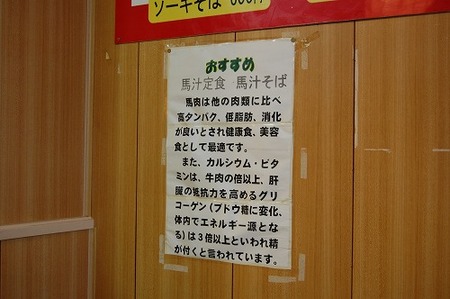 ソーキそば 600円
おすすめ
馬汁定食 馬汁そば
馬肉は他の肉類に比べ
高タンパク、低脂肪、消化
が良いとされ健康食、美容
食として最適です。
また、カルシウム・ビタ
ミンは、牛肉の倍以上、肝
臓の抵抗力を高めるグリ
コーゲン（ブドウ糖に変化、
体内でエネルギー源とな
る）は３倍以上といわれ精
が付くと言われています。